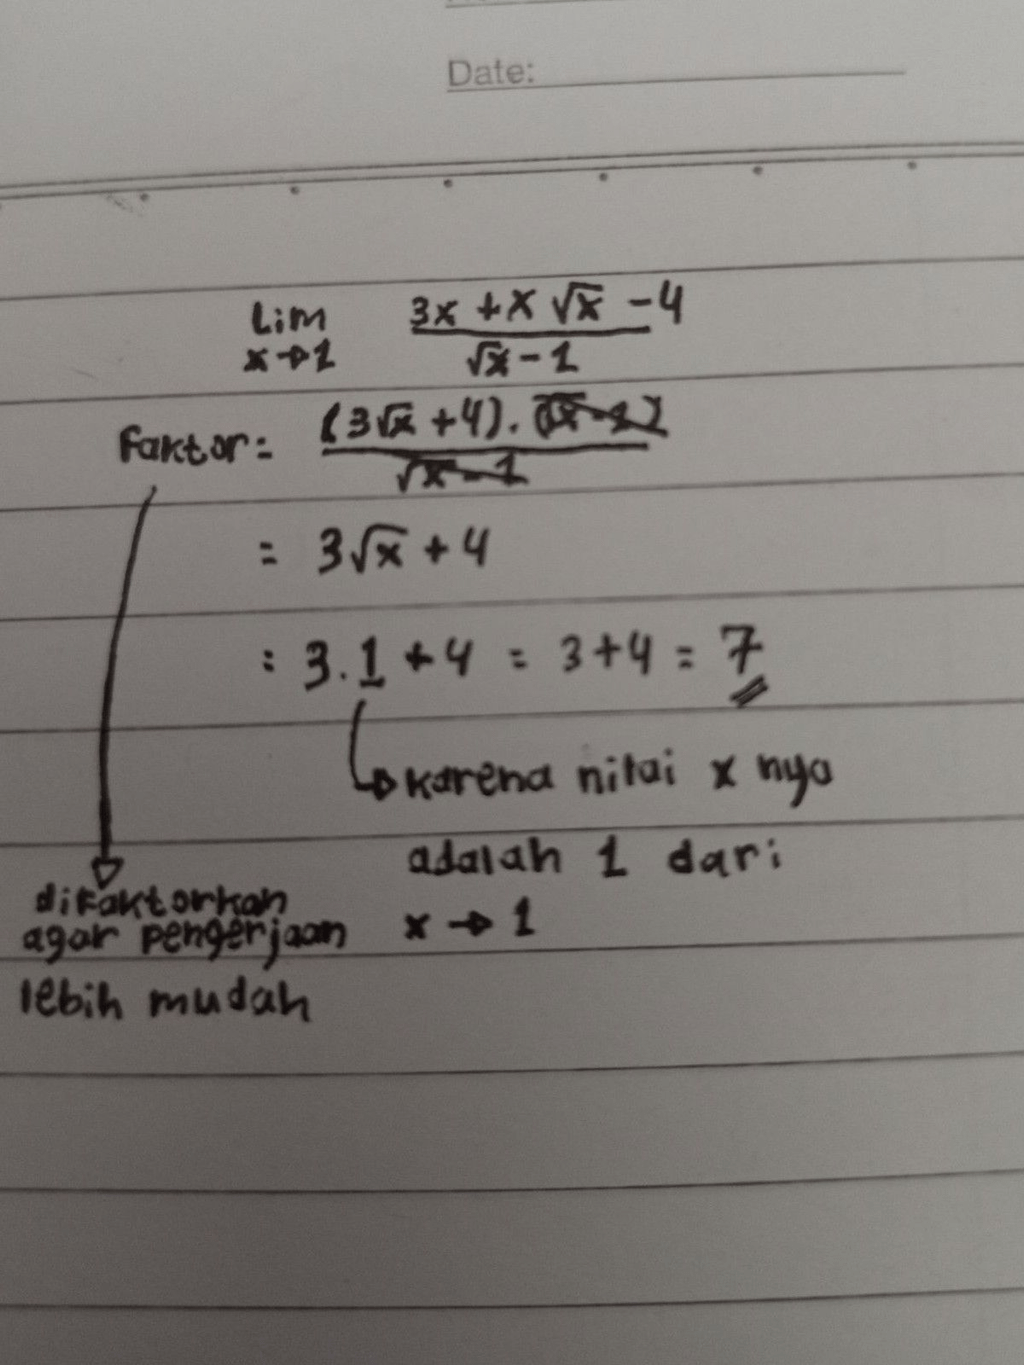 Date:
Lim 3x + x √x - 4
x → 1 √x - 1
Faktor = (3√x + 4) . (√x - 1)
√x - 1
= 3√x + 4
= 3 . 1 + 4 = 3 + 4 = 7
karena nilai x nya
adalah 1 dari
x → 1
difaktorkan
agar pengerjaan
lebih mudah